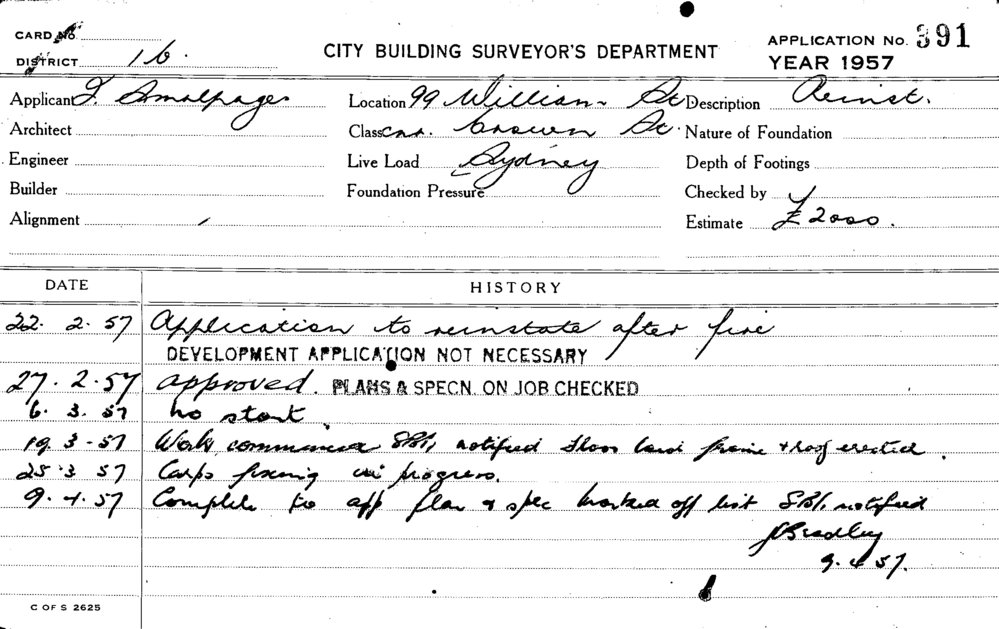 CARD No.
DISTRICT 16.
CITY BUILDING SURVEYOR'S DEPARTMENT
APPLICATION No. 391
YEAR 1957
Applicant J. Smalpages Location 99 William St Description Reinst.
Architect Class cnr. Crown St. Nature of Foundation
Engineer Live Load Sydney Depth of Footings
Builder Foundation Pressure Checked by
Alignment Estimate £2000.
DATE HISTORY
22. 2. 57 Application to reinstate after fire
DEVELOPMENT APPLICATION NOT NECESSARY
27. 2. 57 approved. PLANS & SPECN. ON JOB CHECKED
6. 3. 57 no start.
19. 3-57 Work commenced notified floor laid frame & roof erected.
25. 3 57 Carps fixing in progress.
9. 4. 57 Complete to app plan & spec marked off list notified
Bradley
9. 4 57.
C OF S 2625